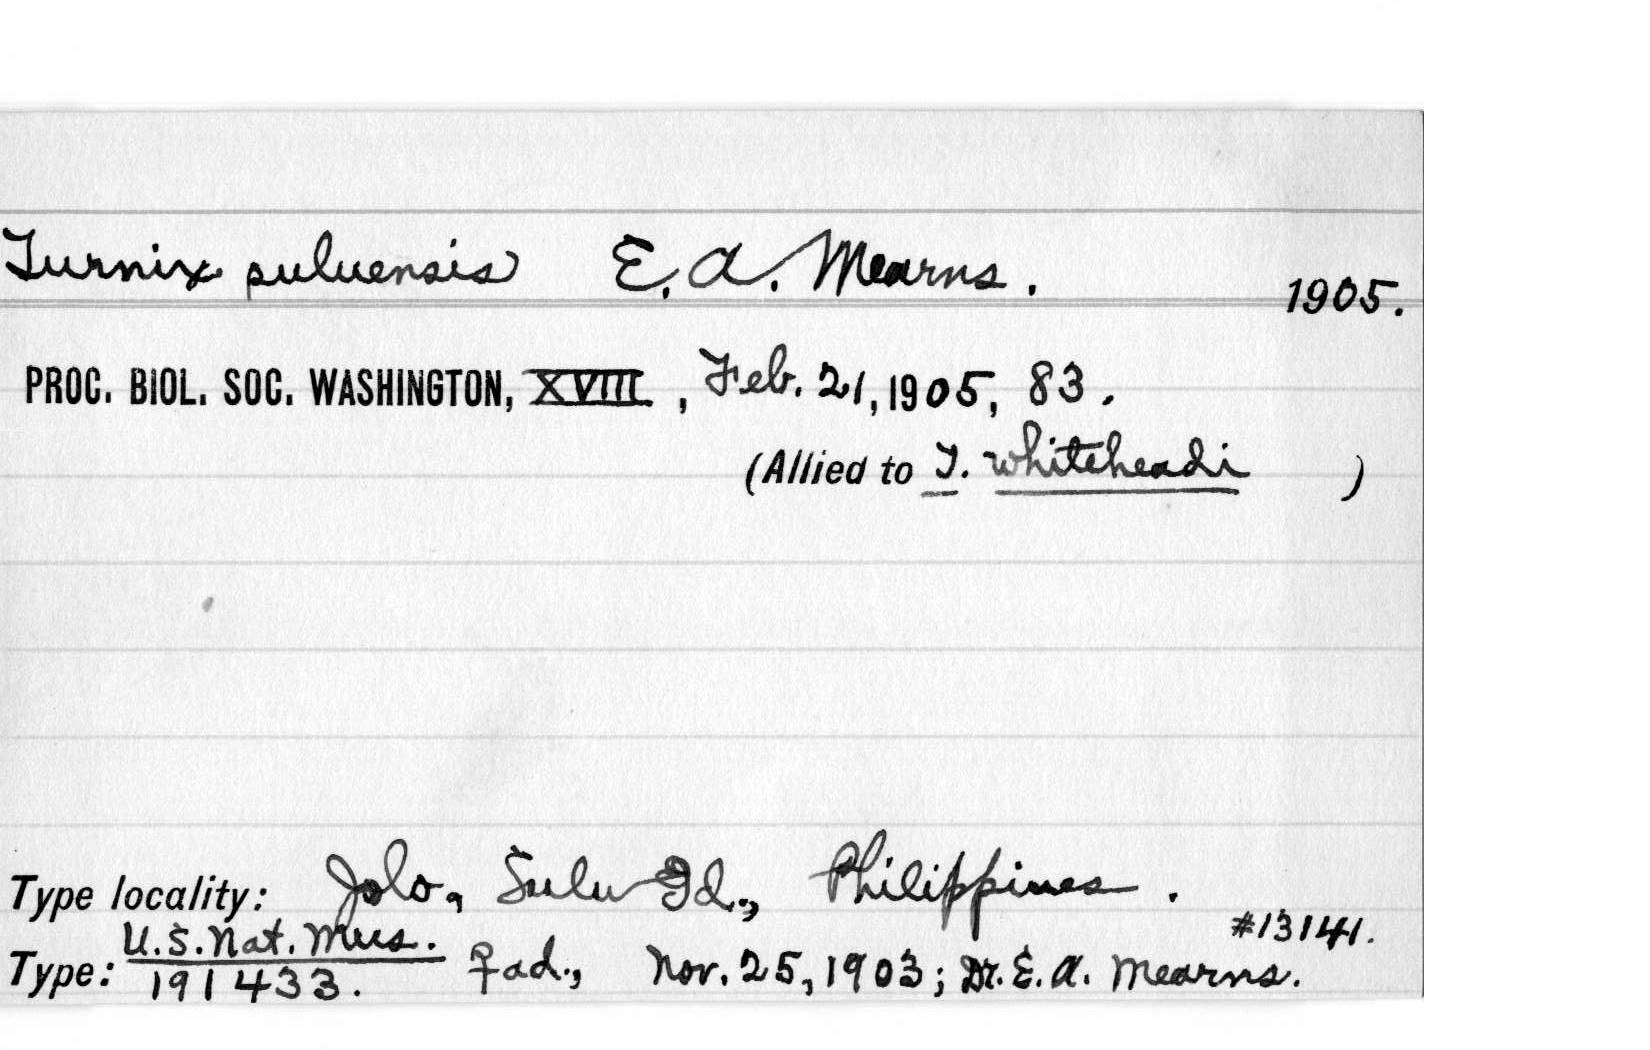 Turnix suluensis E. A. Mearns.
1905.
PROC. BIOL. SOC. WASHINGTON, XVIII, Feb. 21, 1905, 83.
(Allied to T. whiteheadi )
Type locality: Jolo, Sulu Id., Philippines.
#13141.
Type: U.S. Nat. Mus. 191433. ♀ ad., Nov. 25, 1903; Dr. E. A. Mearns.